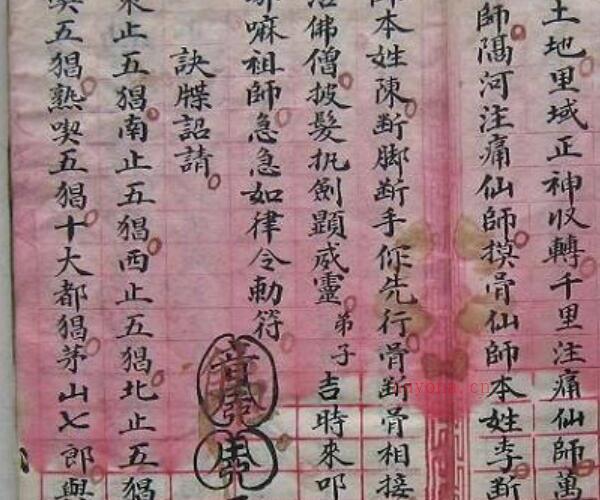 土地里域正神收轉千里注痛仙師萬
師隔河注痛仙師摸骨仙師本姓李斷
師本姓陳斷脚斷手你先行骨斷骨相接
活佛僧披髮扒劍顯威靈弟子吉時來叩
嘛祖師急急如律令勅符
訣牒詔請
東止五猖南止五猖西止五猖北止五猖
喫五猖熟喫五猖十大都猖茅山七郎與